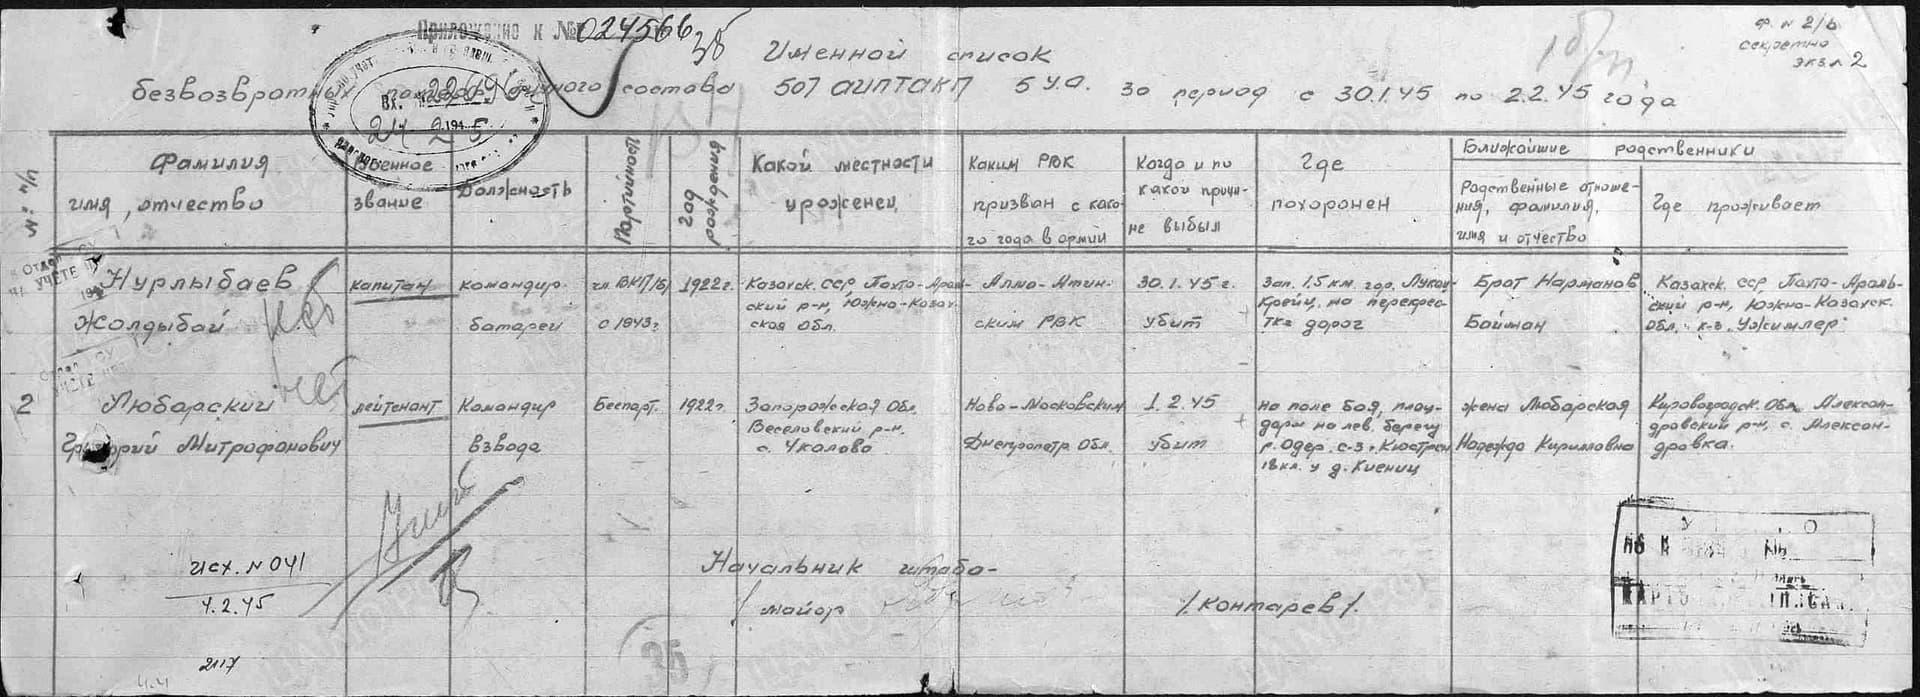 Приложение к № 024566
Ф. N 2/б
секретно
экз. 2
Именной список
безвозвратных потерь личного состава 507 АИПТАКП 5 У.А. за период с 30.1.45 по 2.2.45 года
Вх.
24 2 1945
N: п/п
Фамилия
имя, отчество
Военное
звание
Должность
Партийность
год
рождения
Какой местности
уроженец
Каким РВК
призван с како-
го года в армии
Когда и по
какой причи-
не выбыл
Где
похоронен
Ближайшие родственники
Родственные отноше-
ния, фамилия,
имя и отчество
Где проживает
Нурлыбаев
Жолдыбай
капитан
командир
батареи
чл. ВКП/б/
с 1943г
1922г.
Казахск. ССР Пахто-Араль-
ский р-н, Южно-Казах-
ская Обл.
Алма-Атин-
ским РВК
30.1.45 г.
убит
Зап. 1,5 км. гор.
на перекрес-
тке дорог
Брат Нарманов
Байман
Казахск. ССР Пахто-Араль-
ский р-н, Южно-Казахск.
Обл. к-з
нет
нет
2
Любарский
Григорий Митрофанович
лейтенант
Командир
взвода
Беспарт.
1922г.
Запорожская Обл.
Веселовский р-н,
с. Чкалово
Ново-Московским
Днепропетр. Обл.
1.2.45
убит
на поле боя, плац-
дарм на лев. берегу
р. Одер, с-з г. Кюстрен
18 км. у д. Киениц
жена Любарская
Надежда Кирилловна
Кировоградск. Обл. Алексан-
дровский р-н, с. Алексан-
дровка.
Исх. N 041
4.2.45
Начальник штаба-
майор
/Контарев/.
2117
35